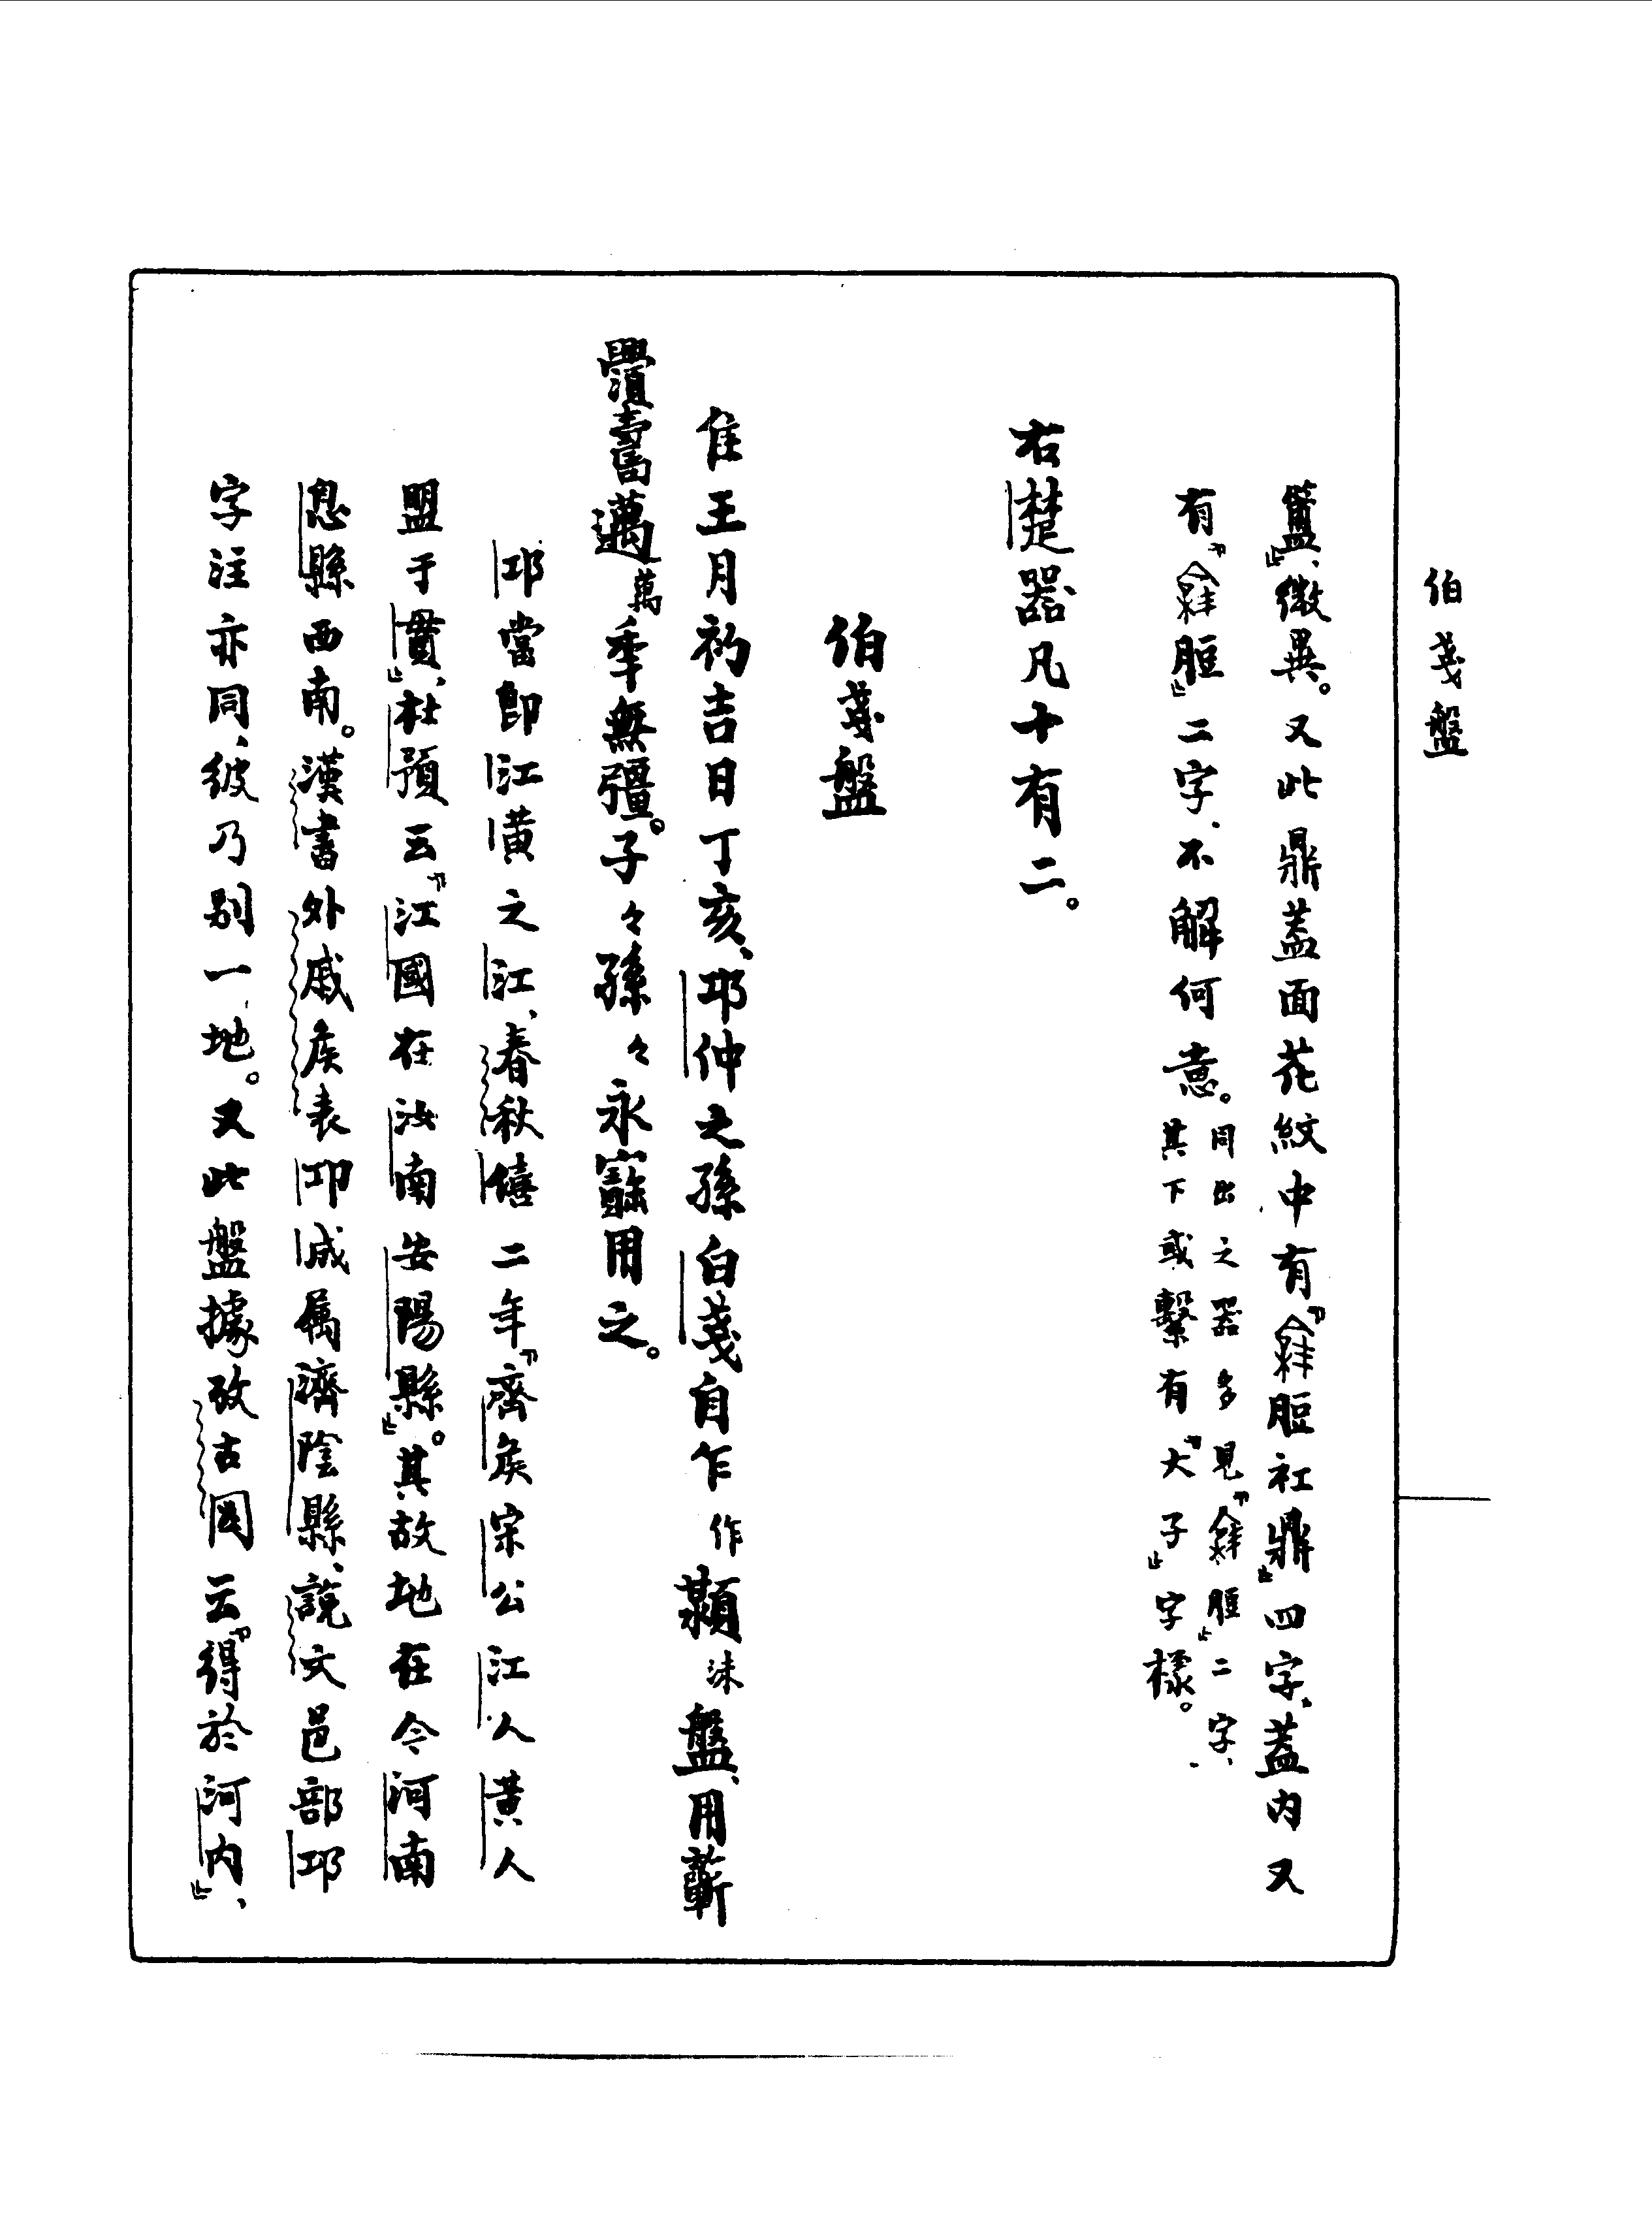 伯戔盤
盨』、微異。又此鼎蓋面花紋中有『脰社鼎』四字、蓋內又
有『脰』二字、不解何意。同出之器多見『脰』二字、其下或繫有『大子』字樣。
右楚器凡十有二。
伯戔盤
隹王月初吉日丁亥、邛仲之孫白戔自乍作沬盤、用蘄
壽邁萬年無彊。子々孫々永寶用之。
邛當卽江黃之江、春秋僖二年『齊矦宋公江人黃人
盟于貫』、杜預云『江國在汝南安陽縣』。其故地在今河南
息縣西南。漢書外戚矦表邛成属濟陰縣、說文邑部邛
字注亦同、彼乃別一地。又此盤據攷古圖云『得於河內』、